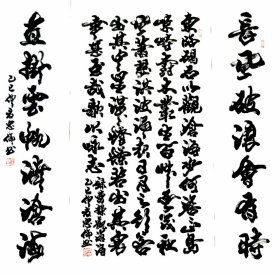 長風破浪會有時
東臨碣石以觀滄海水何澹澹山島
竦峙樹木叢生百草豐茂秋
風蕭瑟洪波湧起日月之行若
出其中星漢燦爛若出其里
幸甚至哉歌以詠志
乙巳仲春
直掛雲帆濟滄海
乙巳仲春